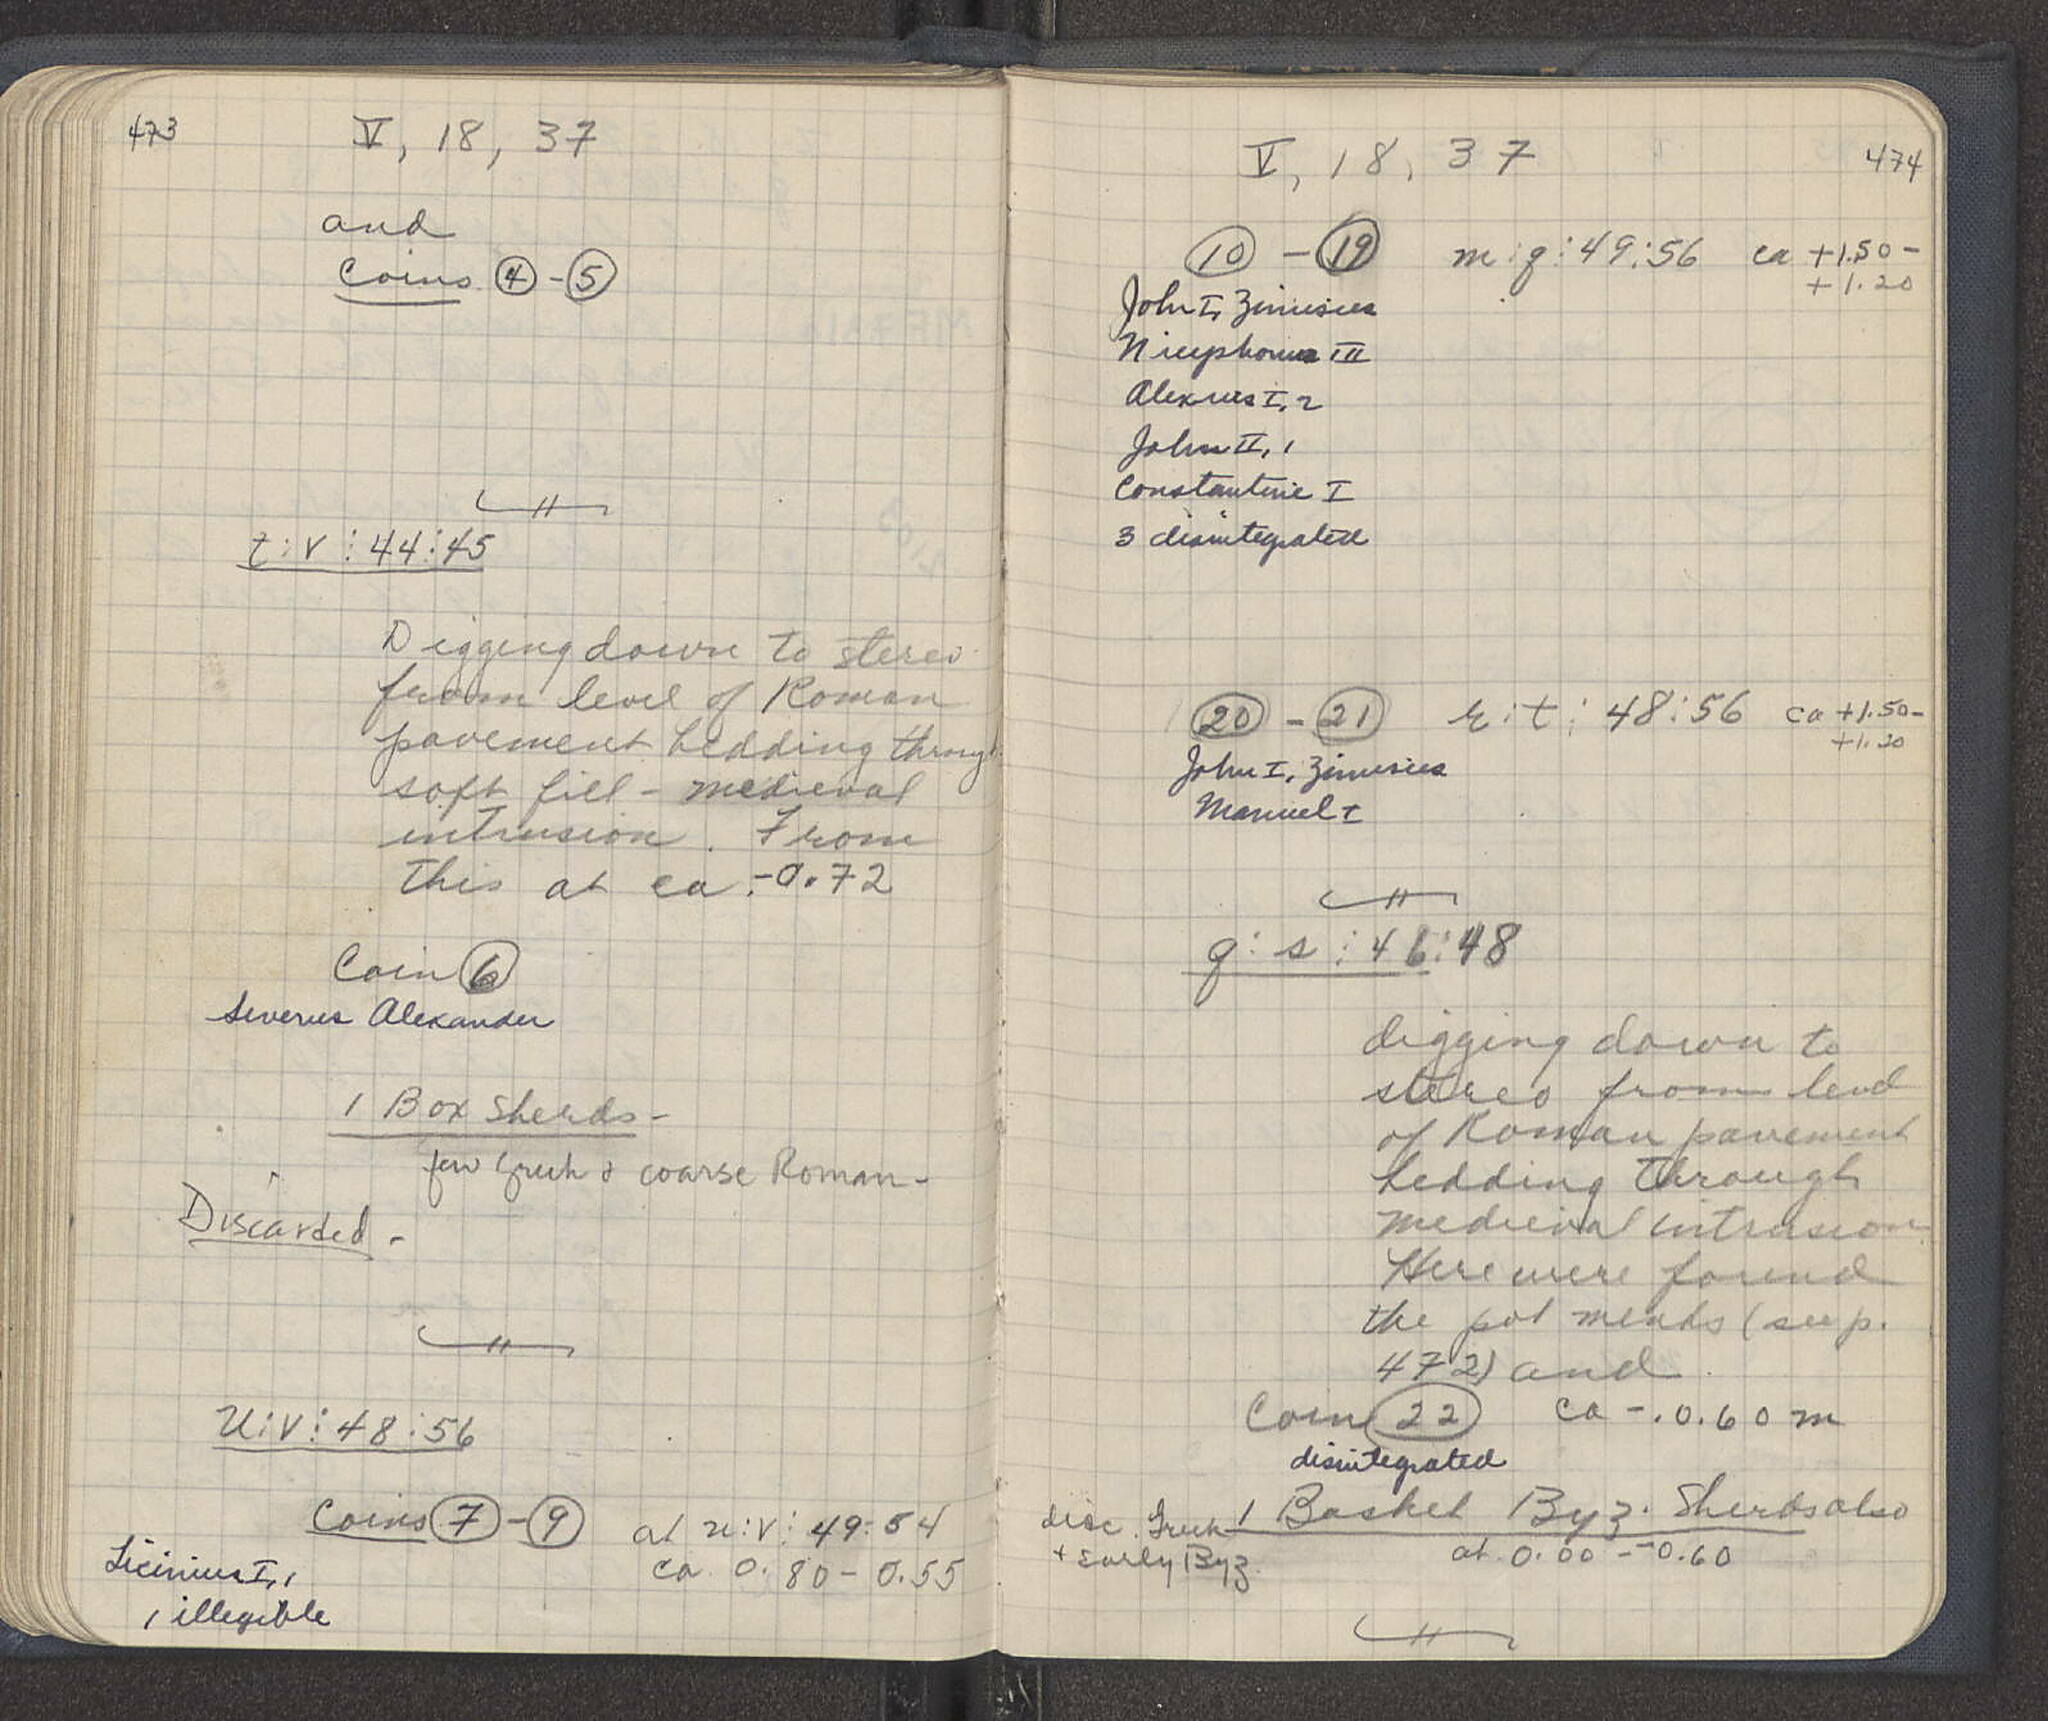 473
V, 18, 37
and
Coins 4 - 5
t:v:44:45
Digging down to stereo
from level of Roman
pavement bedding through
soft fill - medieval
intrusion. From
this at ca. -0.72
Coin 6
Severus Alexander
1 Box Sherds -
few Greek & coarse Roman -
Discarded -
U:V:48:56
Coins 7 - 9 at u:v:49:54
ca 0.80 - 0.55
Licinius I, 1
1 illegible
V, 18, 37
474
10 - 19 m:q:49:56 ca +1.50 -
+1.20
John I, Zimisces
Nicephorus III
Alexius I, 2
John II, 1
Constantine I
3 disintegrated
20 - 21 r:t:48:56 ca +1.50 -
+1.20
John I, Zimisces
Manuel I
q:s:46:48
digging down to
stereo from level
of Roman pavement
bedding through
medieval intrusion
Here were found
the pot mends (see p.
472) and
Coin 22 ca -.0.60 m
disintegrated
1 Basket Byz. Sherds also
at 0.00 - -0.60
disc. Greek
+ Early Byz.